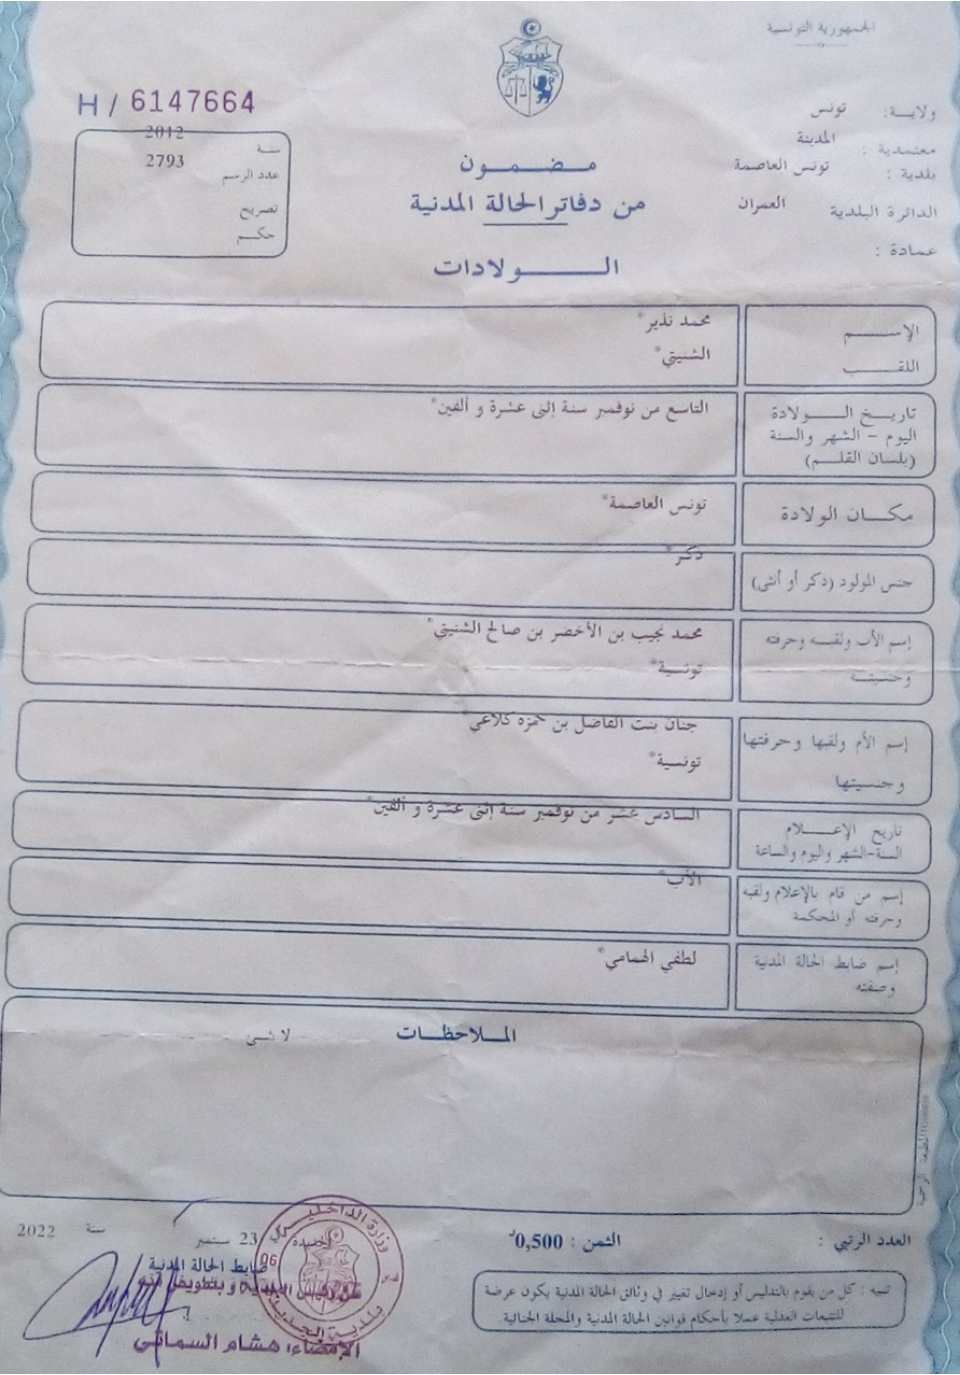 الجمهورية التونسية
H / 6147664
ولايـــة: تونس
معتمدية : المدينة
بلدية : تونس العاصمة
الدائرة البلدية العمران
عمادة :
سنة 2012
عدد الرسم 2793
تصريح
حكـم
مـضـمـون
من دفاتر الحالة المدنية
الــــولادات
الإســــم محمد نذير*
اللقـــب الشنيتي*
تاريـخ الـــولادة التاسع من نوفمبر سنة إثنى عشرة و ألفين*
اليوم – الشهر والسنة
(بلسان القلـــم)
مكـــان الولادة تونس العاصمة*
جنس المولود (ذكر أو أنثى) ذكر*
إسم الأب ولقبـه وحرفته محمد نجيب بن الأخضر بن صالح الشنيتي*
وجنسيتـــه تونسية*
إسم الأم ولقبها وحرفتها جنان بنت الفاضل بن حمزه كلاعي*
وجنسيتها تونسية*
تاريخ الإعـــلام السادس عشر من نوفمبر سنة إثنى عشرة و ألفين*
السنة-الشهر واليوم والساعة
إسم من قام بالإعلام ولقبه الأب*
وحرفته أو المحكمة
إسم ضابط الحالة المدنية لطفي الهمامي*
وصفته
الملاحظات
لا شئ
العدد الرتبي :
الثمن : 0,500د
23 سبتمبر
سنة 2022
ضابط الحالة المدنية
وزارة الداخلية
06
بلدية الجديدة
الإمضاء: هشام السماتي
تنبيه : كل من يقوم بالتدليس أو إدخال تغيير في وثائق الحالة المدنية يكون عرضة
للتتبعات العدلية عملا بأحكام قوانين الحالة المدنية والمجلة الجنائية.